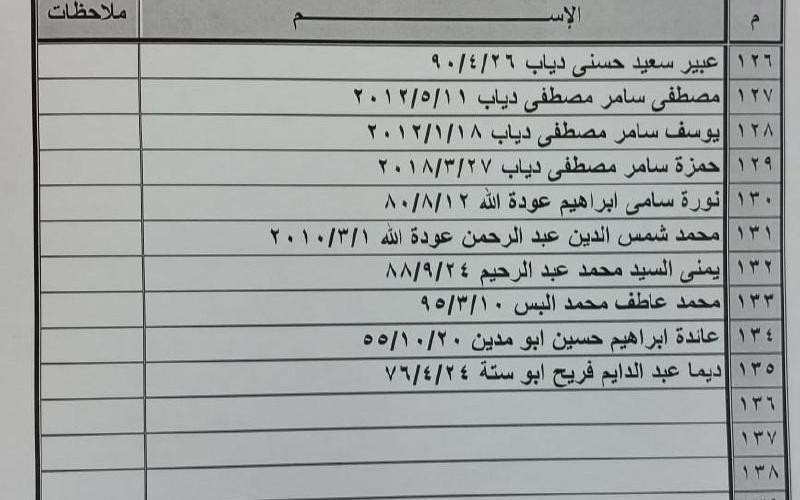 م الإســـــــم ملاحظات
١٢٦ عبير سعيد حسنى دياب ٩٠/٤/٢٦
١٢٧ مصطفى سامر مصطفى دياب ٢٠١٢/٥/١١
١٢٨ يوسف سامر مصطفى دياب ٢٠١٢/١/١٨
١٢٩ حمزة سامر مصطفى دياب ٢٠١٨/٣/٢٧
١٣٠ نورة سامى ابراهيم عودة الله ٨٠/٨/١٢
١٣١ محمد شمس الدين عبد الرحمن عودة الله ٢٠١٠/٣/١
١٣٢ يمنى السيد محمد عبد الرحيم ٨٨/٩/٢٤
١٣٣ محمد عاطف محمد البس ٩٥/٣/١٠
١٣٤ عائدة ابراهيم حسين ابو مدين ٥٥/١٠/٢٠
١٣٥ ديما عبد الدايم فريح ابو ستة ٧٦/٤/٢٤
١٣٦
١٣٧
١٣٨